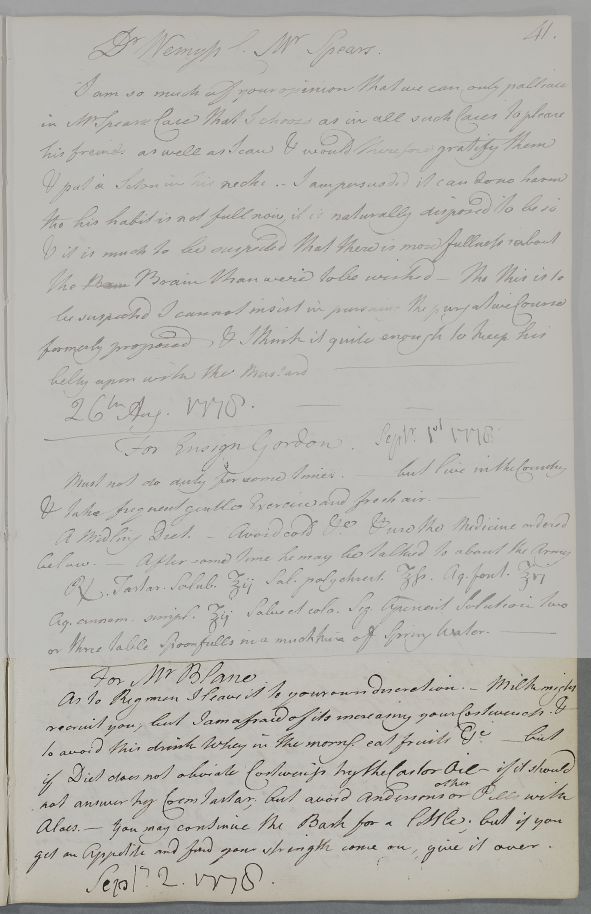 41.
Dr Wemyss f. Mr Spears.
I am so much off your opinion that we can only palliate
in Mr Spears Case that I choose as in all such Cases to please
his freinds as well as I can & would therefore gratify them
& put a Seton in his necke. - I am perswaded it can do no harm
tho his habit is not full now, it is naturally disposed to be so
& it is much to be suspected that there is more fullness about
the Brain than were to be wished - Tho this is to
be suspected I cannot insist in pursuing the purgative Course
formerly proposed, & I think it quite enough to keep his
belly open with the Mustard
26th Aug. 1778.
For Ensign Gordon. Septr. 1st 1778
Must not do duty for some time. - but live in the Country
& take frequent gentle Exercise and fresh air. -
A Midling Diet. - Avoid cold &c & use the Medicine ordered
below. - After some time he may be talked to about the Army
Rx. Tartar. Solub. ℥ij Sal. polychrest ℥ß. Aq. font. ℥vj
Aq. cinnam. simpl. ℥ij Solve et cola. Sig. Aperient Solution two
or three table Spoonfulls in a mutchkin off Spring Water.
For Mr Blane
As to Regimen I leave it to your own discretion. - Milk might
recruit you, but I am afraid of its increasing your Costiveness. &
to avoid this drink Whey in the morng. eat fruits &c - but
if Diet does not obviate Costiveness try the Castor Oil - if it should
not answer try Crem tartar, but avoid Andersons or other Pills with
Aloes. - You may continue the Bark for a little, but if you
get an Appetite and find your strength come on, give it over.
Sept. 2. 1778.